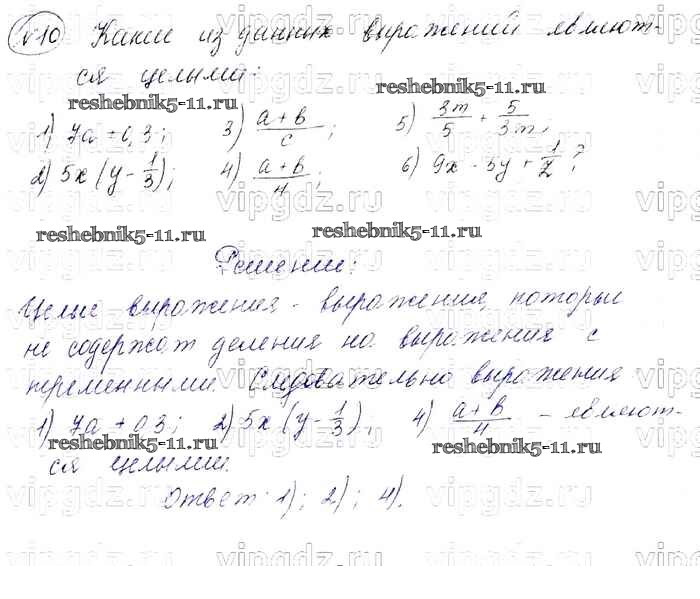 №10 Какие из данных выражений являют-
ся целыми:
reshebnik5-11.ru reshebnik5-11.ru
1) 7a + 0,3; 3) (a+b)/c; 5) 3m/5 + 5/3m;
2) 5x(y - 1/3); 4) (a+b)/4; 6) 9x - 5y + 1/z?
reshebnik5-11.ru reshebnik5-11.ru
Решение:
Целые выражения - выражения, которые
не содержат деления на выражения с
переменными. Следовательно выражения
1) 7a + 0,3; 2) 5x(y - 1/3); 4) (a+b)/4 - являют-
reshebnik5-11.ru reshebnik5-11.ru
ся целыми.
Ответ: 1); 2); 4).
vipgdz.ru vipgdz.ru vipgdz.ru